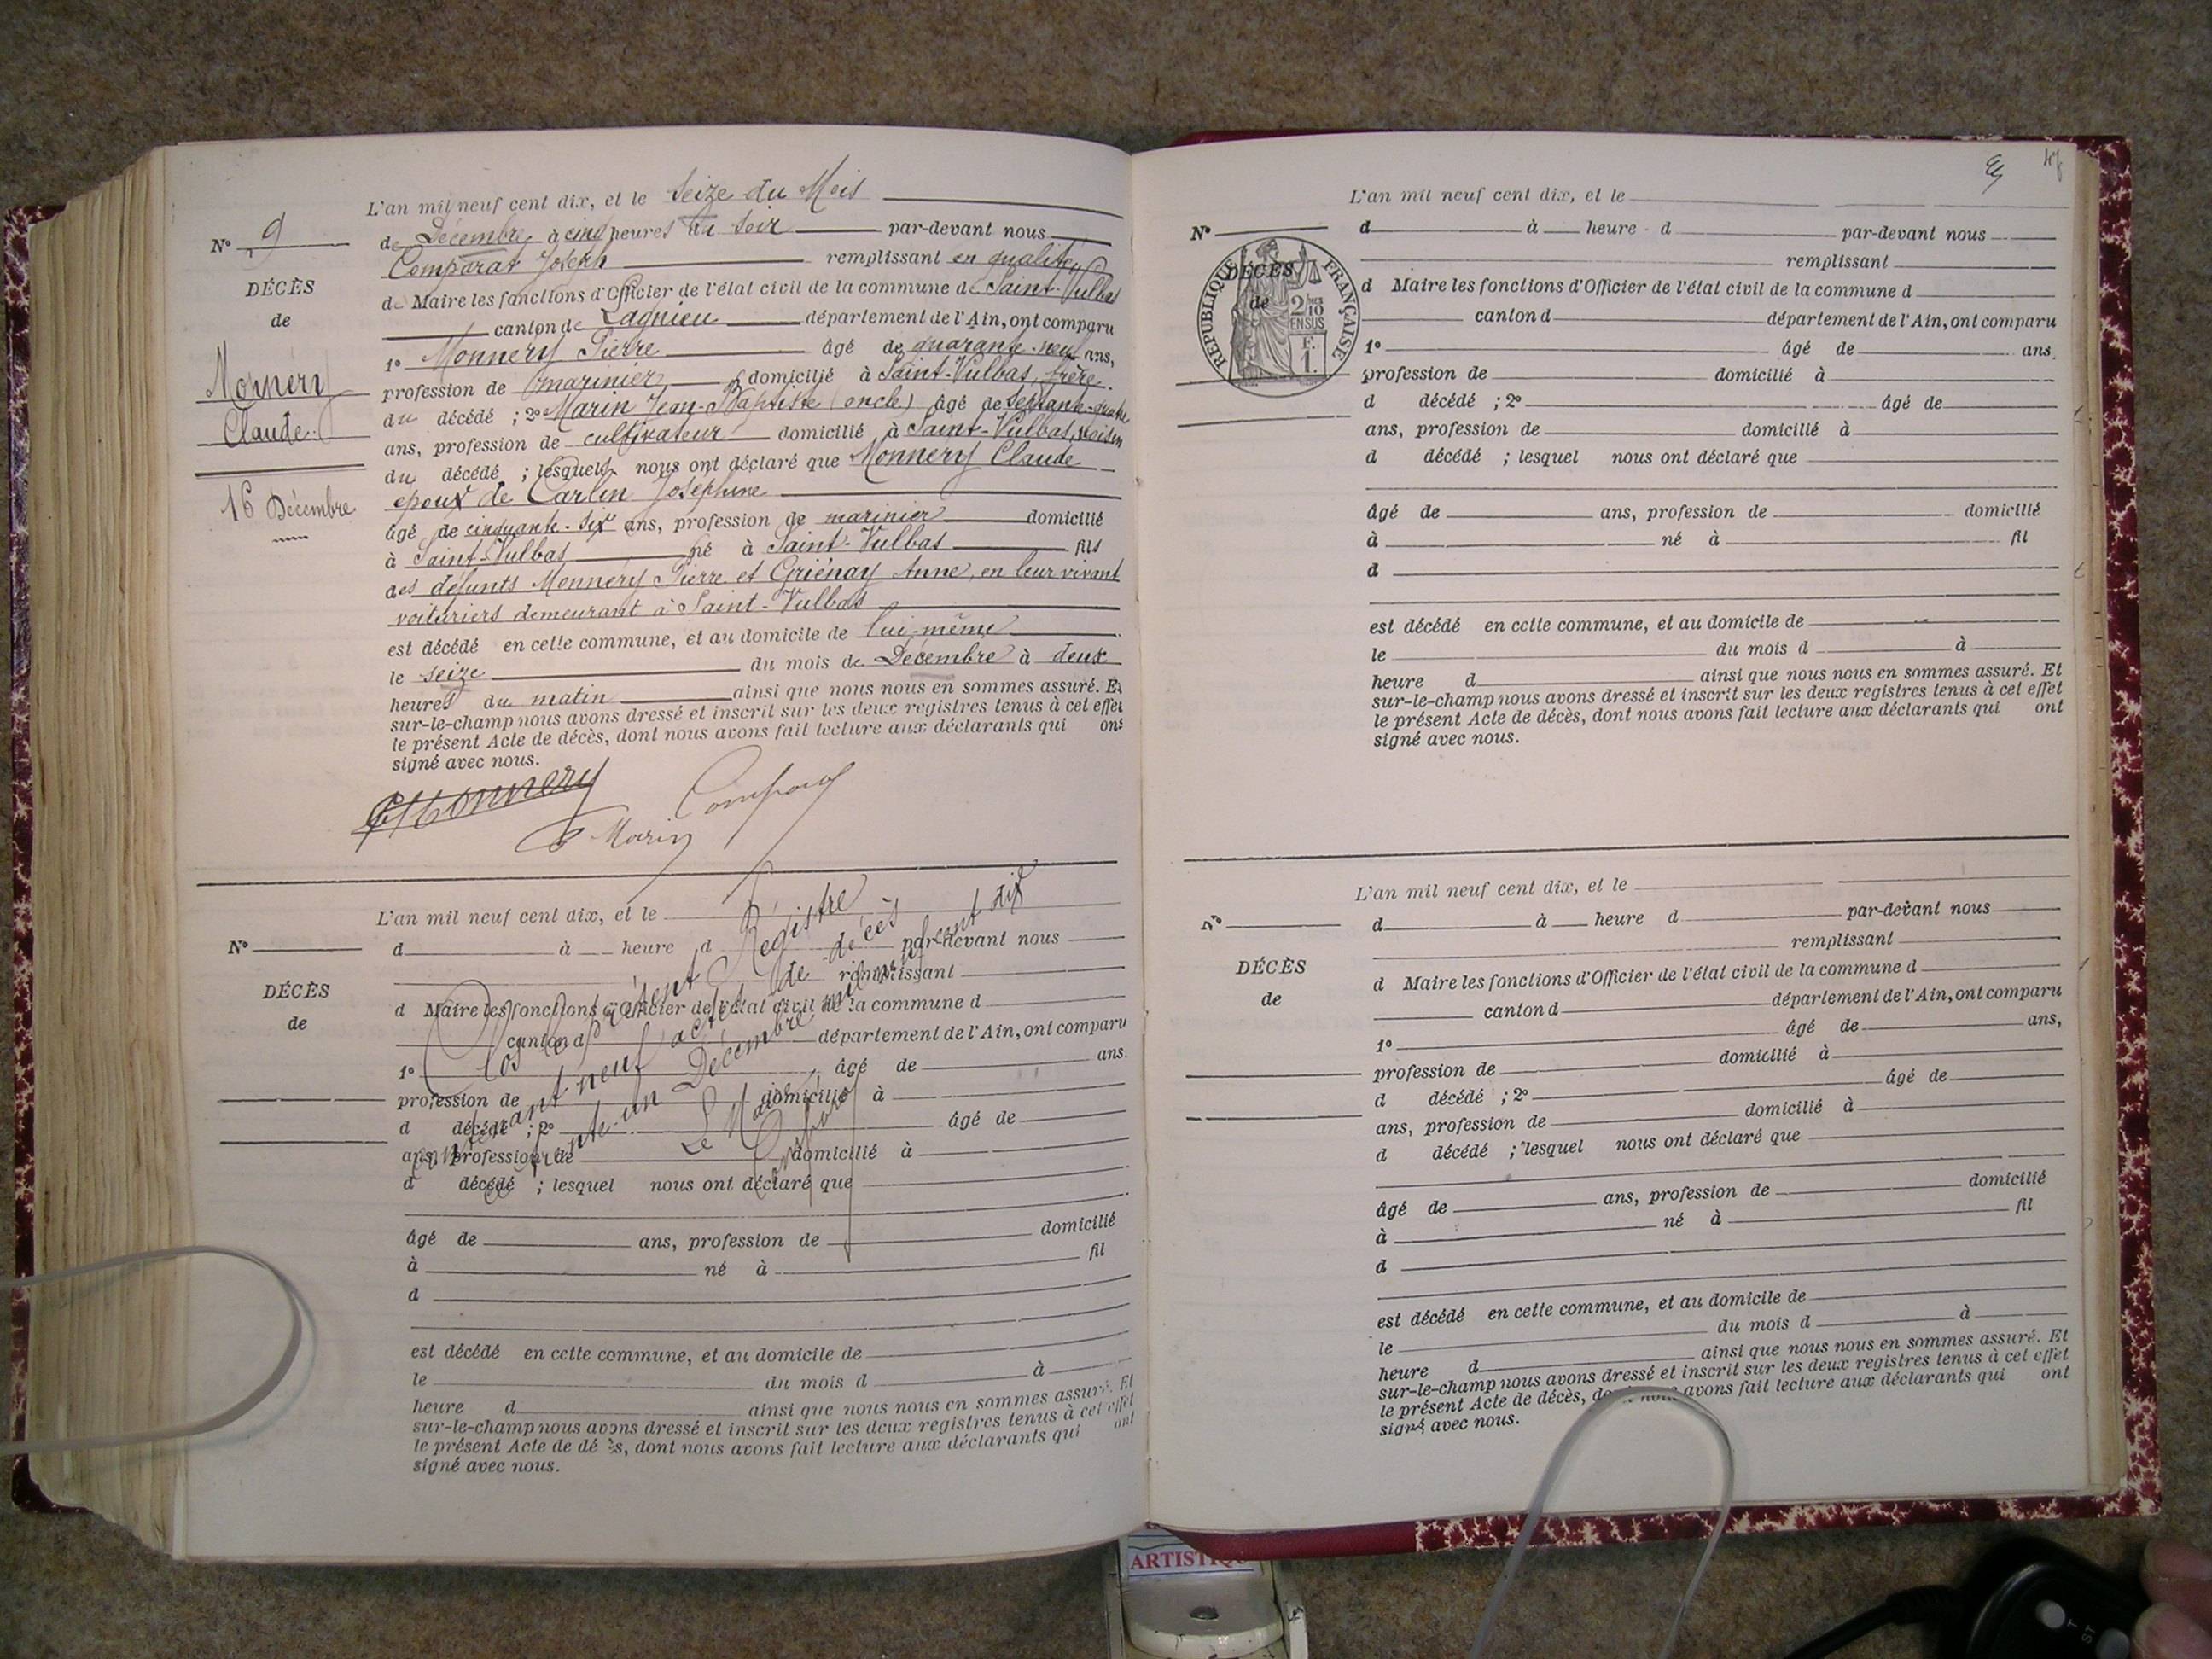 L'an mil neuf cent dix, et le seize du Mois
N° 9
de Décembre à cinq heures du soir par-devant nous
Comparat Joseph remplissant en qualité
DÉCÈS
de Maire les fonctions d'Officier de l'état civil de la commune de Saint-Vulbas
de
canton de Lagnieu département de l'Ain, ont comparu
1° Monnery Pierre âgé de quarante-neuf ans,
Monnery
profession de marinier domicilié à Saint-Vulbas, frère
du décédé ; 2° Marin Jean-Baptiste (oncle) âgé de septante-quatre
Claude
ans, profession de cultivateur domicilié à Saint-Vulbas, voisin
du décédé ; lesquels nous ont déclaré que Monnery Claude
16 Décembre
époux de Carlin Joséphine
âgé de cinquante-six ans, profession de marinier domicilié
à Saint-Vulbas né à Saint-Vulbas fils
des défunts Monnery Pierre et Griénay Anne, en leur vivant
voituriers demeurant à Saint-Vulbas
est décédé en cette commune, et au domicile de lui-même
le seize du mois de Décembre à deux
heures du matin ainsi que nous nous en sommes assuré. Et
sur-le-champ nous avons dressé et inscrit sur les deux registres tenus à cet effet
le présent Acte de décès, dont nous avons fait lecture aux déclarants qui ont
signé avec nous.
Monnery
Comparat
Marin
L'an mil neuf cent dix, et le
N°
d à heure d par-devant nous
remplissant
DÉCÈS
d Maire les fonctions d'Officier de l'état civil de la commune d
de
canton d département de l'Ain, ont comparu
1° âgé de ans.
profession de domicilié à
d décédé ; 2° âgé de
ans, profession de domicilié à
d décédé ; lesquel nous ont déclaré que
âgé de ans, profession de domicilié
à né à fil
d
est décédé en cette commune, et au domicile de
le du mois d à
heure d ainsi que nous nous en sommes assuré. Et
sur-le-champ nous avons dressé et inscrit sur les deux registres tenus à cet effet
le présent Acte de décès, dont nous avons fait lecture aux déclarants qui ont
signé avec nous.
Clos le présent Registre
contenant neuf actes de décès
ce trente-un Décembre mil neuf cent dix
Le Maire
Comparat
47
L'an mil neuf cent dix, et le
N°
d à heure d par-devant nous
remplissant
DÉCÈS
de
RÉPUBLIQUE FRANÇAISE
2/10
EN SUS
F.
1.
d Maire les fonctions d'Officier de l'état civil de la commune d
canton d département de l'Ain, ont comparu
1° âgé de ans,
profession de domicilié à
d décédé ; 2° âgé de
ans, profession de domicilié à
d décédé ; lesquel nous ont déclaré que
âgé de ans, profession de domicilié
à né à fil
d
est décédé en cette commune, et au domicile de
le du mois d à
heure d ainsi que nous nous en sommes assuré. Et
sur-le-champ nous avons dressé et inscrit sur les deux registres tenus à cet effet
le présent Acte de décès, dont nous avons fait lecture aux déclarants qui ont
signé avec nous.
L'an mil neuf cent dix, et le
N°
d à heure d par-devant nous
remplissant
DÉCÈS
d Maire les fonctions d'Officier de l'état civil de la commune d
de
canton d département de l'Ain, ont comparu
1° âgé de ans,
profession de domicilié à
d décédé ; 2° âgé de
ans, profession de domicilié à
d décédé ; lesquel nous ont déclaré que
âgé de ans, profession de domicilié
à né à fil
d
est décédé en cette commune, et au domicile de
le du mois d à
heure d ainsi que nous nous en sommes assuré. Et
sur-le-champ nous avons dressé et inscrit sur les deux registres tenus à cet effet
le présent Acte de décès, dont nous avons fait lecture aux déclarants qui ont
signé avec nous.
ARTISTIQU
T
ST